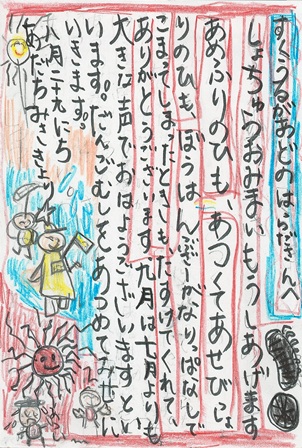 すくうるがあどのはらださんへ
しょちゅうおみまいもうしあげます
あめふりのひも、あつくてあせびしょ
りのひも、ぼうはんぶざーがなりっぱなしで
こまてしまたときも、たすけてくれて、
ありがとうございます。九月は七月よりも
大きに声でおはようございますとい
います。だんごむしをあつめてみせに
いきます。
八月二十九にち
あだちみさきより